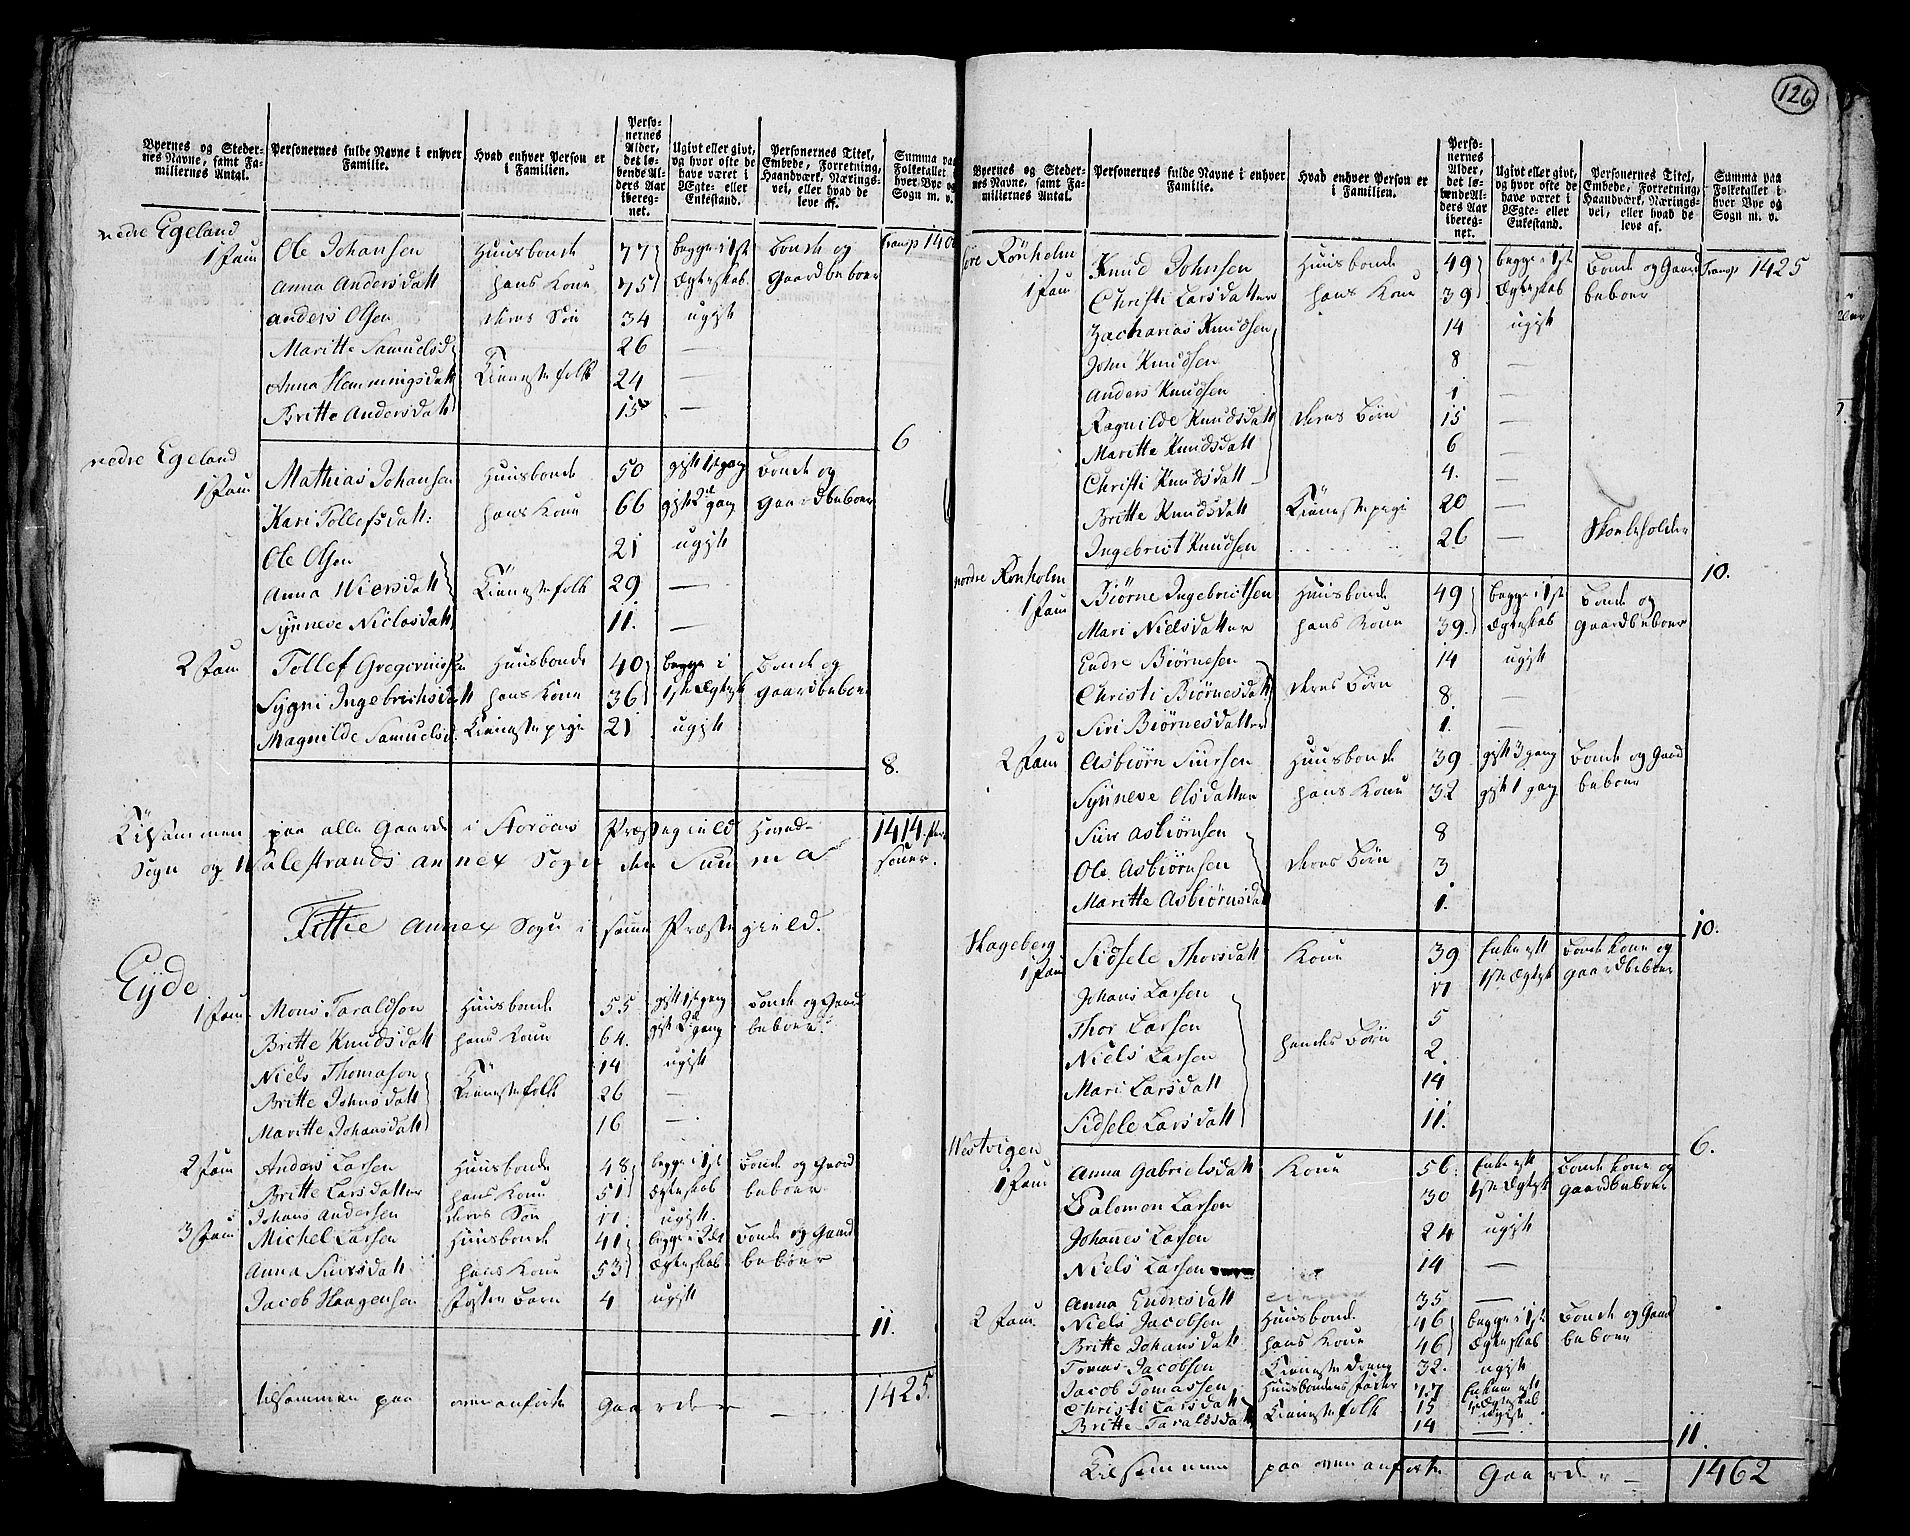 126
Byernes og Steder-
nes Navne, samt Fa-
miliernes Antal.
Personernes fulde Navne i enhver
Familie.
Hvad enhver Person er
i Familien.
Perso-
nernes
Alder,
det lø-
bende Al-
ders Aar
ibereg-
net.
Ugivt eller givt,
og hvor ofte de
have været i
Ægte- eller
Enkestand.
Personernes Titel,
Embede, Forretning,
Haandværk, Nærings-
vei, eller hvad de
leve af.
Summa paa
Folketallet i
hver Bye og
Sogn m. v.
nedre Egeland
1 Fam Ole Johansen Huusbonde 77 begge i 1ste Bonde og Transp 1400
Anna Andersdatt hans Kone 75 Ægteskab Gaardbeboer
Anders Olsen deres Søn 34 ugift
Maritte Samuelsd 26 —
Anna Hemmingsdatt Tienestefolk 24 —
Britte Andersdatt 15 —
6
nedre Egeland
1 Fam Mathias Johansen Huusbonde 50 gift 1ste gang Bonde og
Kari Tollefsdatt: hans Kone 66 gift 2d gang Gaardbeboer
Ole Olsen 21 ugift
Anna Niersdatt Tienestefolk 29 —
Synneve Niclasdatt 11. —
2 Fam Tollef Gregoriussen Huusbonde 40 begge i Bonde og
Sygni Ingebrichsdatt hans Kone 36 1ste Ægtesk gaardbeboer
Magnilde Samuelsd. Tienestepige 21 ugift
8.
Tilsammen paa alle Gaarde i Askøens Præstegields Hoved-
Sogn og Walestrands annex Sogn den Summa 1414 Per-
soner.
Fittie annex Sogn i samme Præstegield.
Eyde
1 Fam Mons Taraldson Huusbonde 55 gift 1ste gang Bonde og Gaard
Britte Knudsdatt hans Kone 64. gift 2d gang beboer
Niels Thomason 14 ugift
Britte Johnsdatt Tienestefolk 26 —
Maritte Johansdatt 16 —
2 Fam Anders Larsen Huusbonde 48 begge i 1ste Bonde og Gaard
Britte Larsdatter hans Kone 51 Ægteskab beboer
Johans Andersen deres Søn 11. ugift
3 Fam Michel Larsen Huusbonde 41 begge i 2det Bonde og Gaard
Anna Siursdatt hans Kone 53 Ægteskab beboer
Jacob Haagensen Foster Barn 4 ugift
11.
tilsammen paa ovenanførte Gaarder — 1425.
Byernes og Steder-
nes Navne, samt Fa-
miliernes Antal.
Personernes fulde Navne i enhver
Familie.
Hvad enhver Person er
i Familien.
Perso-
nernes
Alder,
det lø-
bende Al-
ders Aar
ibereg-
net.
Ugivt eller givt,
og hvor ofte de
have været i
Ægte- eller
Enkestand.
Personernes Titel,
Embede, Forretning,
Haandværk, Nærings-
vei, eller hvad de
leve af.
Summa paa
Folketallet i
hver Bye og
Sogn m. v.
søre Rönholm
1 Fam Knud Johnsen Huusbonde 49 begge i 1ste Bonde og Gaard Transp 1425
Christi Larsdatter hans Kone 39 Ægteskab beboer
Zacharias Knudsen 14 ugift
John Knudsen 8 —
Anders Knudsen 1 —
Ragnilde Knudsdatt deres Börn 15 —
Maritte Knudsdatt 6 —
Christi Knudsdatt 4. —
Britte Knudsdatt Tienestepige 20 —
Ingebrict Knudsen 26 — Skoeleholder
10.
nordre Rönholm
1 Fam Biørne Ingebrictsen Huusbonde 49 begge i 1ste Bonde og
Mari Nielsdatter hans Kone 39. Ægteskab gaardbeboer
Endre Biørnesen 14 ugift
Christi Biørnesdatt deres Börn 8. —
Siri Biørnesdatter 1. —
2 Fam Asbiørn Siursen Huusbonde 39 gift 3 gang Bonde og Gaard
Synneve Olsdatter hans Kone 32 gift 1 gang beboer
Siur Asbiørnsen 8
Ole Asbiørnsen deres Börn 3
Maritte Asbiørnsdatt 1.
10.
Hageberg
1 Fam Sidsele Thorsdatt Kone 39 Enke eft Bonde Kone og
1ste Ægtesk gaardbeboer
Johans Larsen 11
Thor Larsen 5
Niels Larsen hendes Börn 2.
Mari Larsdatt 14
Sidsele Larsdatt 11.
6.
Westvigen
1 Fam Anna Gabrielsdatt Kone 56. Enke eft Bonde Kone og
Salomon Larson 30 1ste Ægtesk gaardbeboer
Johannes Larsen 24 ugift
Niels Larsen 14 —
Anna Endresdatt 35. —
2 Fam. Niels Jacobsen Huusbonde 46 begge i 1ste Bonde og Gaard
Britte Johansdatt hans Kone 46 Ægteskab beboer
Tomas Jacobsen Tieneste dreng 32. ugift
Jacob Tomassen Huusbondens Fader 77 Enkem eft
Christi Larsdatt Tienestefolk 15 1 Ægteskab
Britte Taraldsdatt 14 ugift
11.
Tilsammen paa ovenanførte Gaarder — 1462